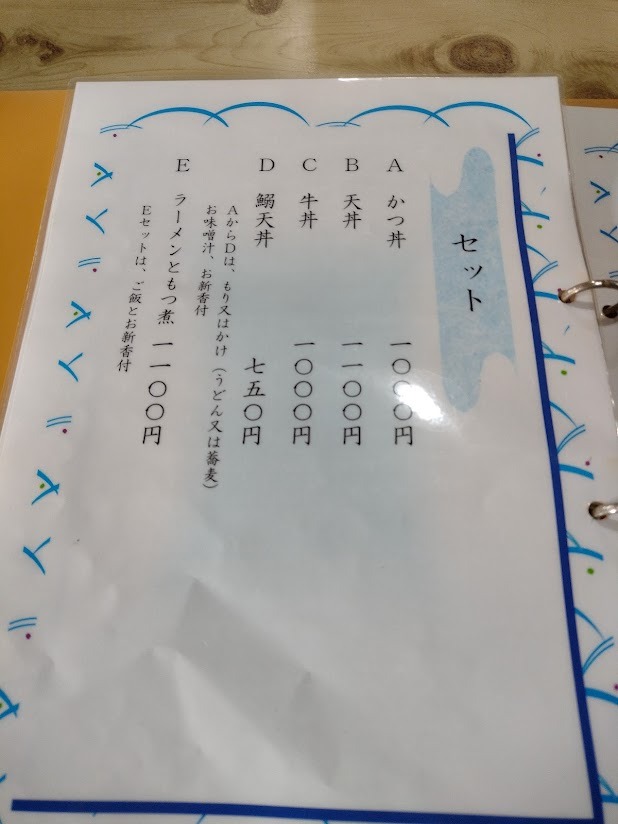 セット
A かつ丼 一〇〇〇円
B 天丼 一一〇〇円
C 牛丼 一〇〇〇円
D 鰯天丼 七五〇円
AからDは、もり又はかけ（うどん又は蕎麦）
お味噌汁、お新香付
E ラーメンともつ煮 一一〇〇円
Eセットは、ご飯とお新香付